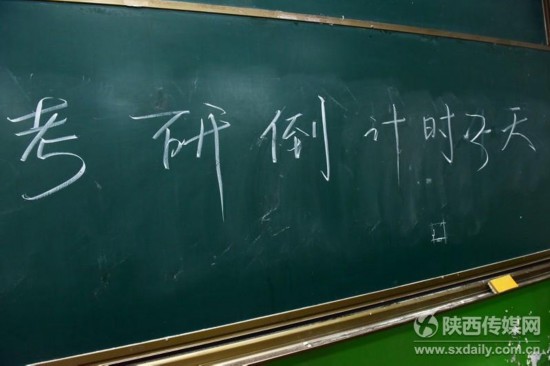 考研倒计时3天
陕西传媒网
www.sxdaily.com.cn